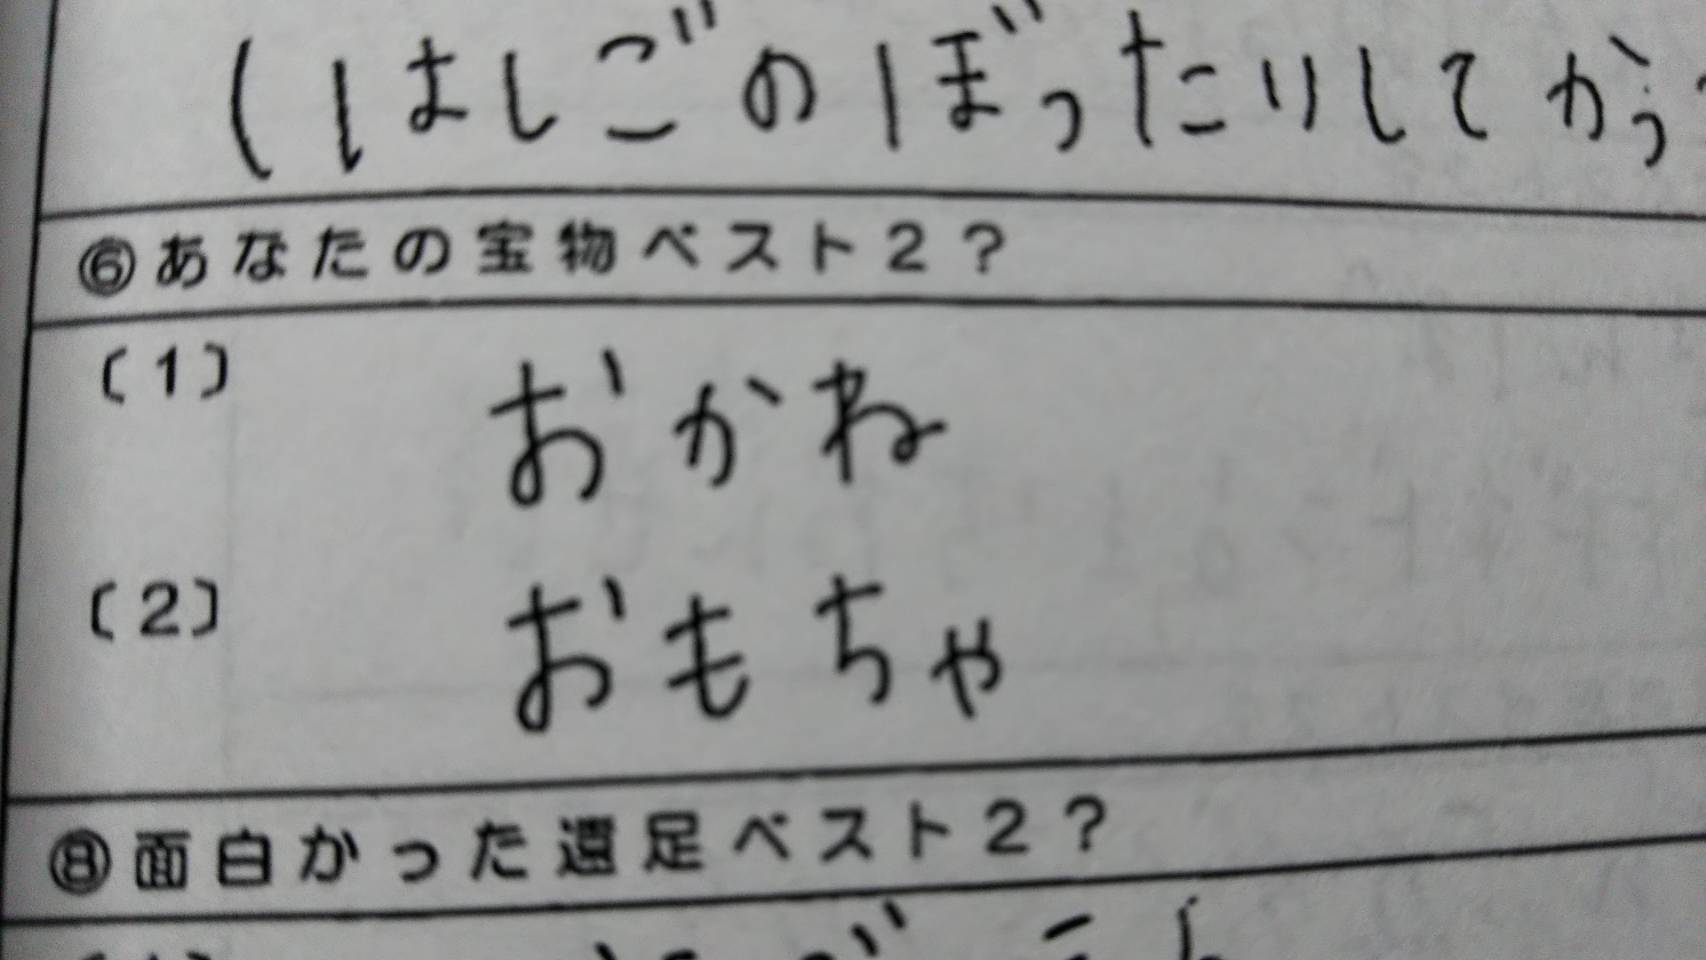 (はしごのぼったりしてかっ
⑥あなたの宝物ベスト2?
〔1〕 おかね
〔2〕 おもちゃ
⑧面白かった遠足ベスト2?